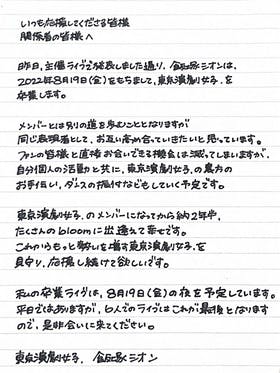 いつも応援してくださる皆様
関係者の皆様へ
昨日、主催ライブで発表しました通り、飯塚シオンは、
2022年8月19日(金)をもちまして、東京演劇女子.を
卒業します。
メンバーとは別の道を歩むこととなりますが
同じ表現者として、お互い高め合っていきたいと思っています。
ファンの皆様と直接お会いできる機会は減ってしまいますが、
自分個人の活動と共に、東京演劇女子.の裏方の
お手伝い、ダンスの振付などもしていく予定です。
東京演劇女子.のメンバーになってから約2年半、
たくさんのbloomに出逢えて幸せです。
これからもっと勢いを増す東京演劇女子.を
見守り、応援し続けて欲しいです。
私の卒業ライブは、8月19日(金)の夜を予定しています。
平日ではありますが、6人でのライブはこれが最後となります
ので、是非会いに来てください。
東京演劇女子. シオン